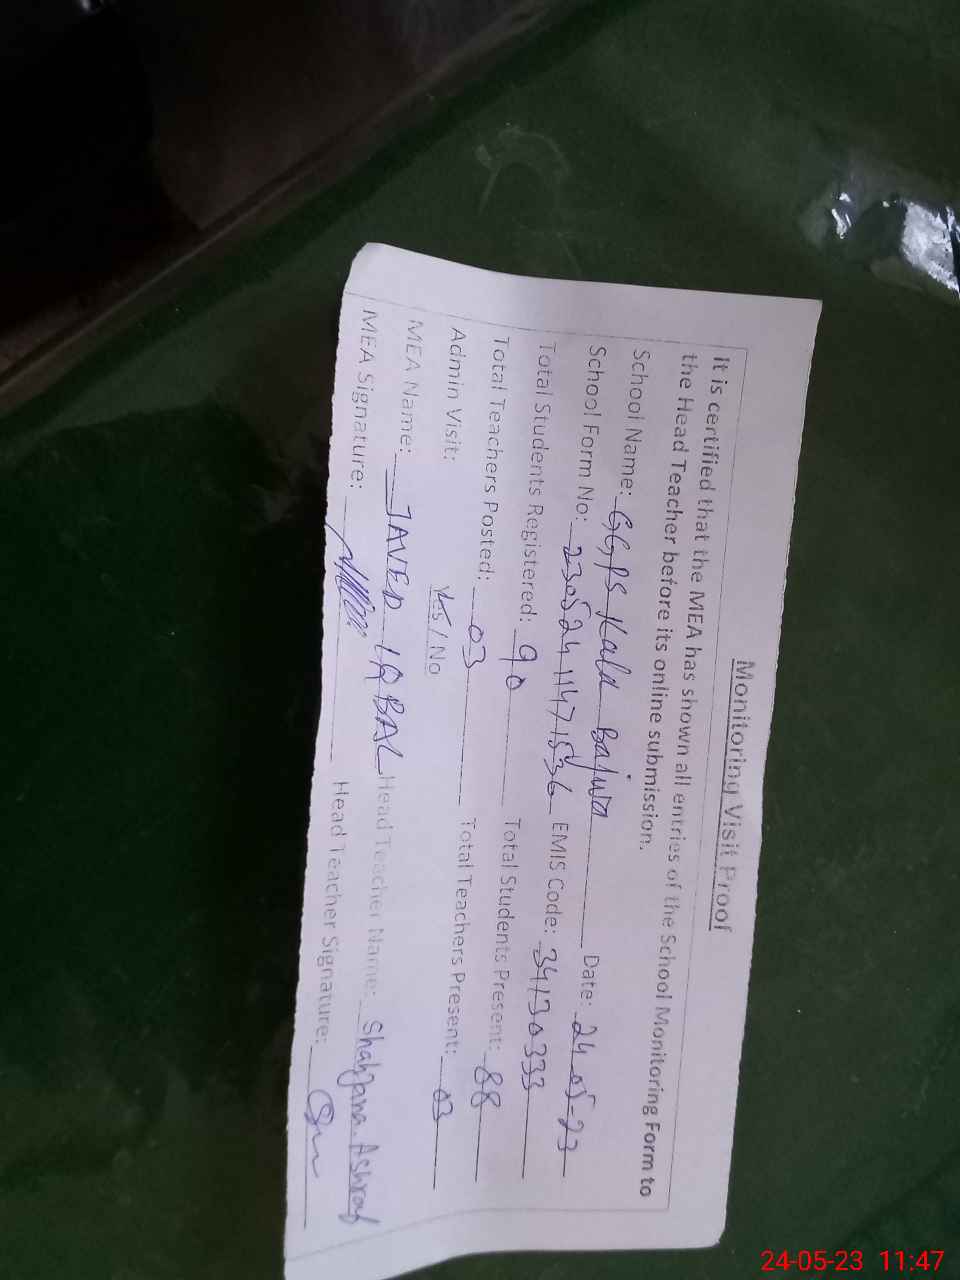 Monitoring Visit Proof
It is certified that the MEA has shown all entries of the School Monitoring Form to
the Head Teacher before its online submission.
School Name: GGPS Kala Bajwa Date: 24-05-23
School Form No: 23052411471536 EMIS Code: 34130333
Total Students Registered: 90 Total Students Present: 88
Total Teachers Posted: 03 Total Teachers Present: 03
Admin Visit: Yes / No
MEA Name: JAVED IQBAL Head Teacher Name: Ashraf
MEA Signature: Head Teacher Signature:
24-05-23 11:47